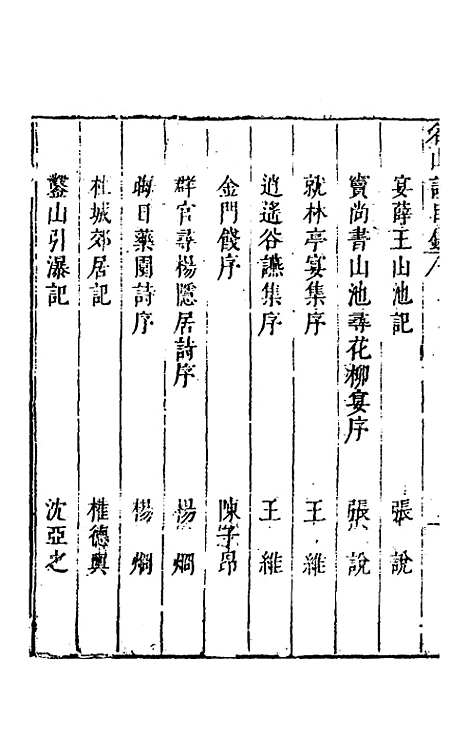 宴薛王山池記　張說
竇尚書山池尋花柳宴序　張說
就林亭宴集序　王維
逍遙谷讌集序　王維
金門餞序　陳子昂
群官尋楊隱居詩序　楊烱
晦日藥園詩序　楊烱
杜城郊居記　權德輿
鑿山引瀑記　沈亞之